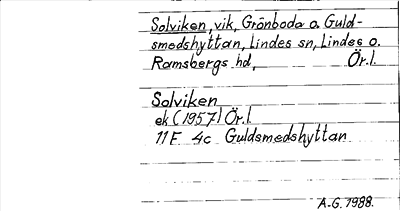 Solviken, vik, Grönboda o. Guld-
smedshyttan, Lindes sn, Lindes o.
Ramsbergs hd, Ör.l.
Solviken
ek (1957) Ör.l.
11F 4c Guldsmedshyttan
A.G. 1988.